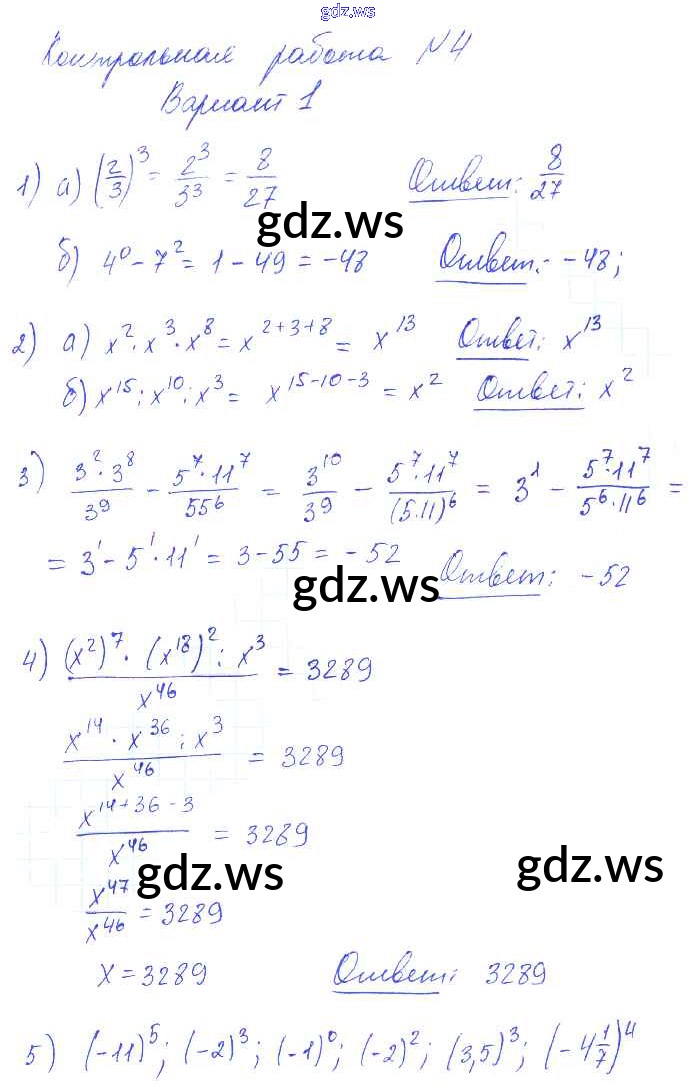 gdz.ws
Контрольная работа №4
Вариант 1
1) а) (2/3)³ = 2³/3³ = 8/27 Ответ: 8/27
gdz.ws
б) 4⁰ - 7² = 1 - 49 = -48 Ответ: -48;
2) а) x² · x³ · x⁸ = x²⁺³⁺⁸ = x¹³ Ответ: x¹³
б) x¹⁵ : x¹⁰ : x³ = x¹⁵⁻¹⁰⁻³ = x² Ответ: x²
3) 3² · 3⁸/3⁹ - 5⁷ · 11⁷/55⁶ = 3¹⁰/3⁹ - 5⁷ · 11⁷/(5·11)⁶ = 3¹ - 5⁷ · 11⁷/5⁶ · 11⁶ =
= 3¹ - 5¹ · 11¹ = 3 - 55 = -52 Ответ: -52
gdz.ws
4) (x²)⁷ · (x¹⁸)² : x³/x⁴⁶ = 3289
x¹⁴ · x³⁶ : x³/x⁴⁶ = 3289
x¹⁴⁺³⁶⁻³/x⁴⁶ = 3289
gdz.ws gdz.ws
x⁴⁷/x⁴⁶ = 3289
x = 3289 Ответ: 3289
5) (-11)⁵; (-2)³; (-1)⁰; (-2)²; (3,5)³; (-4 1/7)⁴